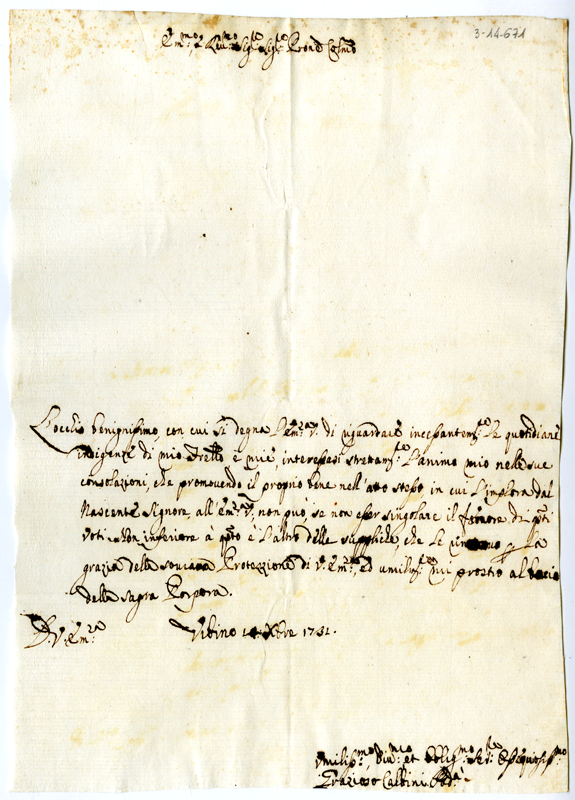 3-14-671
Em.mo, e Rev.mo Sig.re Sig.re Pron.e Col.mo
L'occhio benignissimo, con cui si degna l'Em.za V. di riguardare incessantem.te le quotidiane
indigenze di mio Fretello e mie, interessa sì strettam.te l'animo mio nelle sue
consolazioni, che promovendo il proprio bene nell'atto stesso in cui l'implora dal
Nascente Signore, all'Em.za V. non può se non esser singolare il fervore di q.ti
voti. Non inferiore à q.sto è l'altro delle suppliche, che le p la
grazia della sovrana Protezzione di V. Em.za, ed umilm.te mi prostro al bacio
della sagra Porpora.
D. V. Em.za Urbino Xbre 1731.
Umiliss.mo, Div.mo et oblig.mo Ser.re Ossequosiss.mo
Calbini